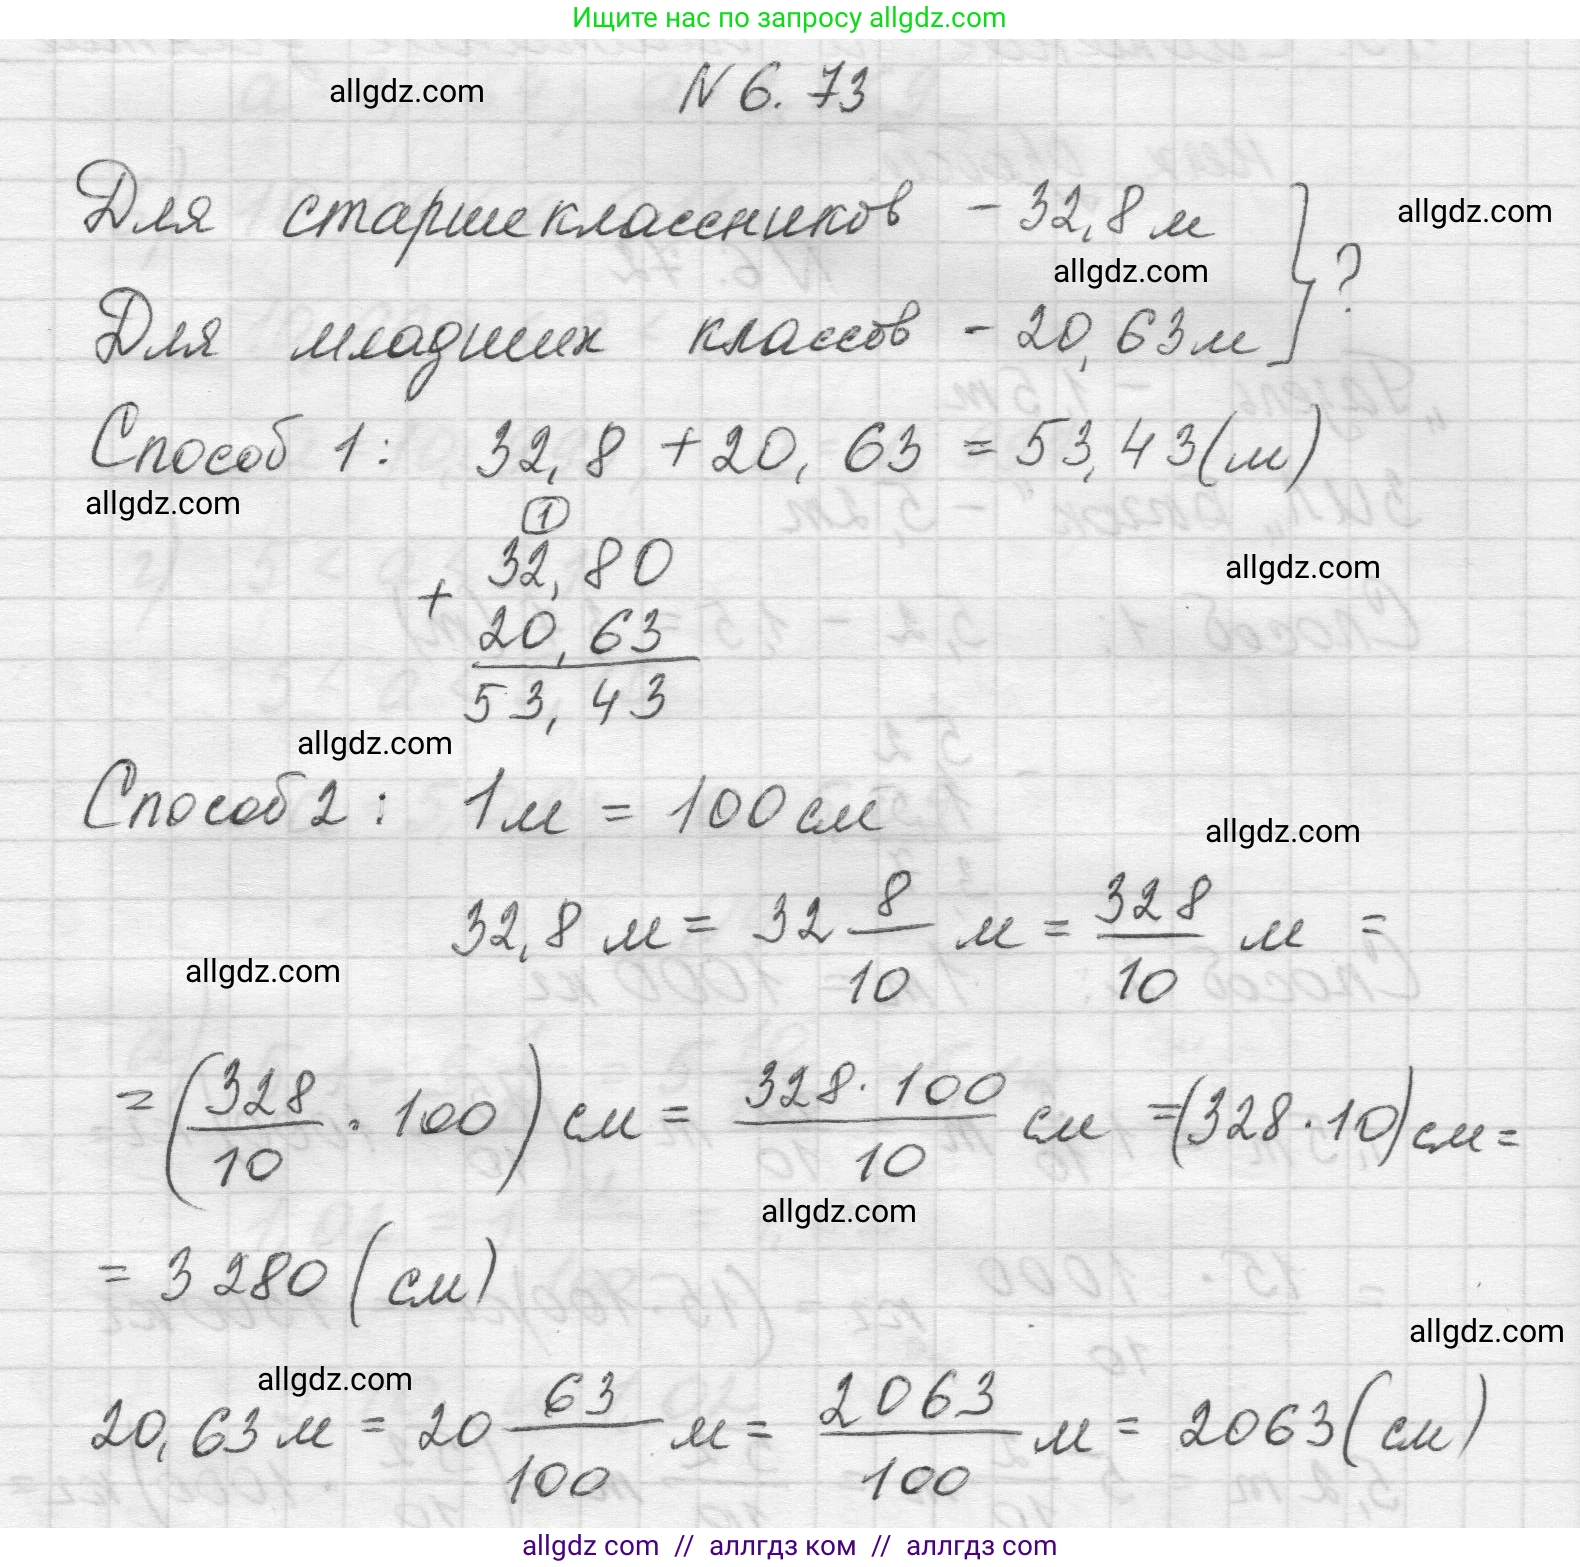 Ищите нас по запросу allgdz.com
allgdz.com
N 6. 73
Для старшеклассников - 32,8 м
allgdz.com
allgdz.com
} ?
Для младших классов - 20,63 м
Способ 1: 32,8 + 20,63 = 53,43 (м)
allgdz.com
1
32,80
allgdz.com
+
20,63
53,43
allgdz.com
Способ 2: 1 м = 100 см
allgdz.com
32,8 м = 32 8/10 м = 328/10 м =
allgdz.com
= (328/10 · 100) см = 328 · 100/10 см = (328 · 10) см =
allgdz.com
= 3 280 (см)
allgdz.com
allgdz.com
20,63 м = 20 63/100 м = 2063/100 м = 2063 (см)
allgdz com // аллгдз ком // allgdz.com